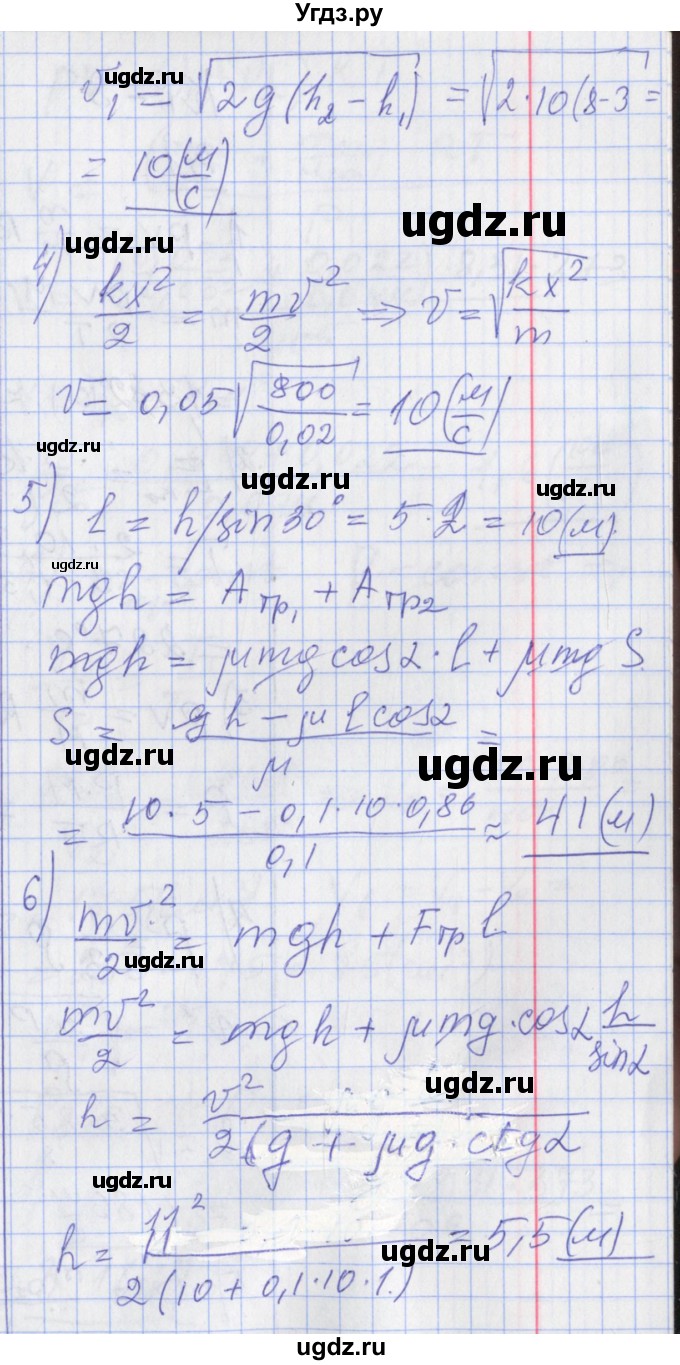 Угдз.ру
ugdz.ru
v₁ = √(2g(h₂ - h₁)) = √(2·10(8-3 =
= 10(м/с)
ugdz.ru
ugdz.ru
4) kx²/2 = mv²/2 ⇒ v = √(kx²/m)
v = 0,05√(800/0,02) = 10(м/с)
ugdz.ru
ugdz.ru
5) l = h/sin30° = 5·2 = 10(м)
ugdz.ru
ugdz.ru
mgh = Aтр₁ + Aтр2
mgh = μmg cos2·l + μmg S
S = (gh - μ l cos2)/μ =
ugdz.ru
ugdz.ru
= (10·5 - 0,1·10·0,86)/0,1 ≈ 41(м)
6) mv²/2 = mgh + Fтр l
ugdz.ru
mv²/2 = mgh + μmg·cos2 h/sin2
ugdz.ru
h = v²/2(g + μg·ctg2
ugdz.ru
h = 11²/2(10 + 0,1·10·1.) = 5,5(м)
ugdz.ru
ugdz.ru